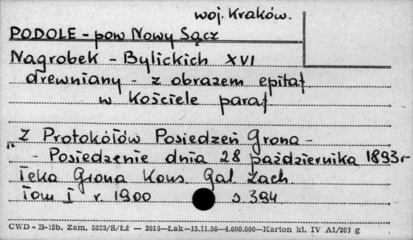 woj. Kraków.
PODOLE - pow Nowy Sącz
Nagrobek - Bylickich XVI
drewniany - z obrazem epitaf
w Kościele paraf
"Z Protokółów Posiedzeń Grona -
- Posiedzenie dnia 28 października 1893 r
Teka Grona Kons Gal Zach
Tom I r. 1900 s. 394
CWD - B-15b. Zam. 5323/S/Łż — 3015—Łak—15.11.56—4.000.000—Karton kl. IV A1/200 g